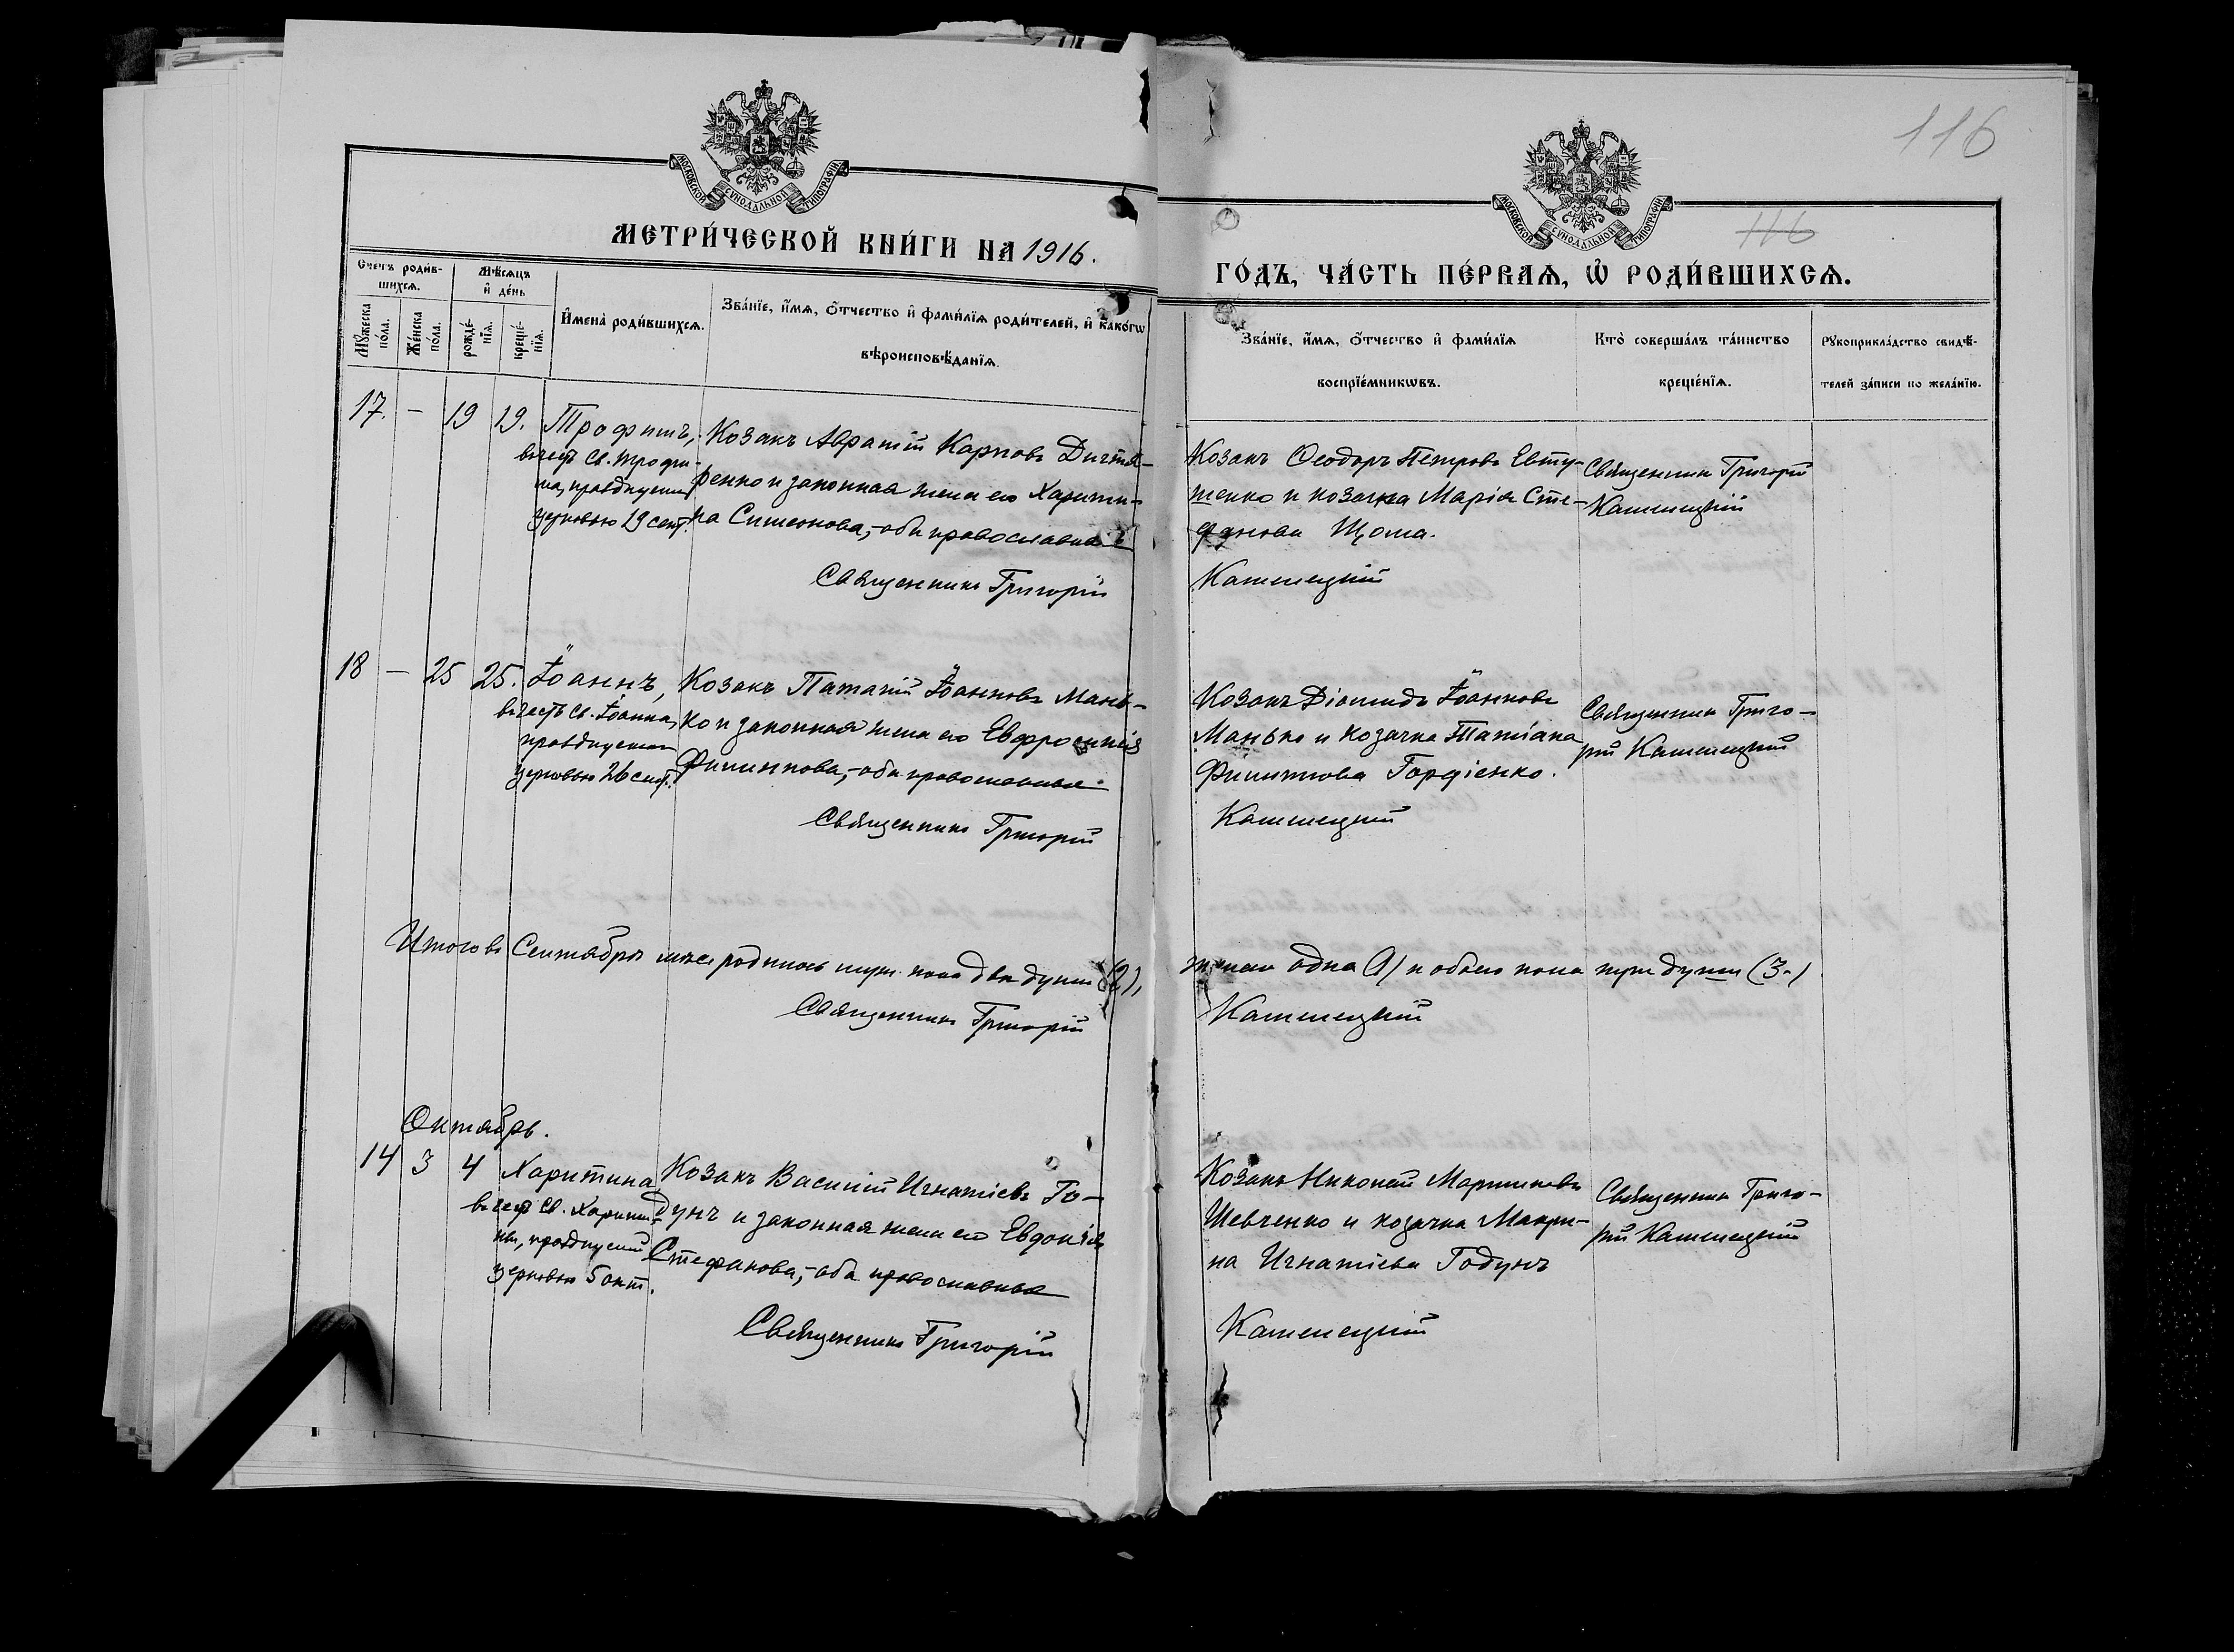 116
116
МОСКОВСКОЙ СѴНОДАЛЬНОЙ ТИПОГРАФІИ
МОСКОВСКОЙ СѴНОДАЛЬНОЙ ТИПОГРАФІИ
МЕТРИ́ЧЕСКОЙ КНИ́ГИ НА 1916.
ГО́ДЪ, ЧА́СТЬ ПЕ́РВАѦ, Ѽ РОДИ́ВШИХСѦ.
Счетъ роди́в-
шихсѧ.
Мѣ́сѧцъ
и҆ де́нь
Мꙋ́жеска
по́ла.
Же́нска
по́ла.
рожде́-
нїѧ.
креще́-
нїѧ.
И҆мена̀ роди́вшихсѧ.
Зва́нїе, и҆́мѧ, ѻ҆́тчество и҆ фами́лїѧ роди́телей, и҆ како́гѡ
вѣроисповѣ́данїѧ.
Зва́нїе, и҆́мѧ, ѻ҆́тчество и҆ фами́лїѧ
воспрїе́мникѡвъ.
Кто̀ соверша́лъ та́инство
креще́нїѧ.
Рꙋкоприкла́дство свидѣ́-
телей за́писи по жела́нїю.
17. — 19 19. Трофимъ,
въ честь Св. Трофи-
ма, празднуемаго
церковью 19 сент.
Козакъ Авраамій Карповъ Дигтя-
ренко и законная жена его Харити-
на Симеонова, – оба православные
Священникъ Григорій
Козакъ Ѳеодоръ Петровъ Евту-
шенко и козачка Марія Сте-
фанова Щома.
Каменецкій
Священникъ Григорій
Каменецкій
18 — 25 25. Іоаннъ,
въ честь Св. Іоанна,
празднуемаго
церковью 26 сент.
Козакъ Патапій Іоанновъ Мань-
ко и законная жена его Евфросинія
Филиппова, – оба православные
Священникъ Григорій
Козакъ Діомидъ Іоанновъ
Манько и козачка Татіана
Филиппова Гордіенко.
Каменецкій
Священникъ Григо-
рій Каменецкій
Итого въ Сентябрѣ м-цѣ родилось муж. пола двѣ души (2),
женск. одна (1) и обоего пола три души (3-)
Священникъ Григорій
Каменецкій
Октябрь.
14 3 4 Харитина
въ честь Св. Харити-
ны, празднуемой
церковью 5 окт.
Козакъ Василій Игнатіевъ Го-
дунъ и законная жена его Евдокія
Стефанова, – оба православные
Священникъ Григорій
Козакъ Николай Мартиновъ
Шевченко и козачка Маври-
на Игнатіева Годунъ
Каменецкій
Священникъ Григо-
рій Каменецкій